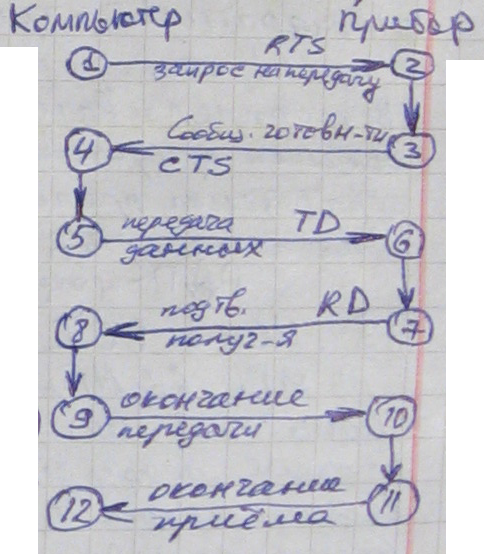 Компьютер Прибор
RTS
1 запрос на передачу 2
Сообщ. готовн-ти
4 CTS 3
передача TD
5 данных 6
подтв. RD
8 получ-я 7
окончание
9 передачи 10
окончание
12 приёма 11